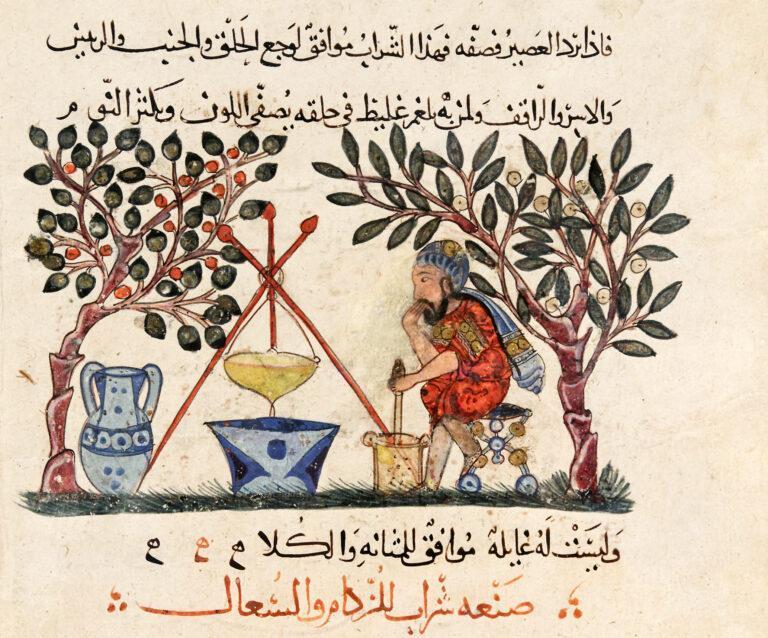 فاذا برد العصير فصفّه فهذا الشراب موافق لوجع الحلق والجنب والريش
والاسر والراقف ولمن به بلغم غليظ في حلقه يصفي اللون ويكثر النوم
وليست له غايلة موافق للمثانه والكلا
صنعه شراب للزكام والسعال